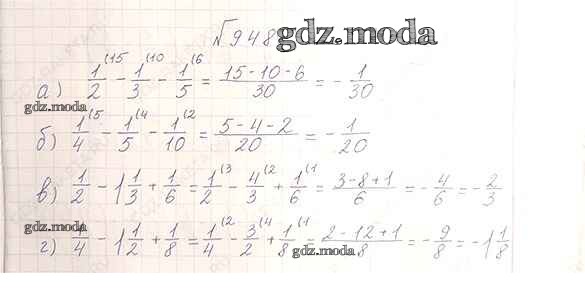 №948
gdz.moda
а) 1/2 (15 - 1/3 (10 - 1/5 (6 = 15-10-6/30 = - 1/30
gdz.moda
б) 1/4 (5 - 1/5 (4 - 1/10 (2 = 5-4-2/20 = - 1/20
в) 1/2 - 1 1/3 + 1/6 = 1/2 (3 - 4/3 (2 + 1/6 (1 = 3-8+1/6 = - 4/6 = - 2/3
gdz.moda
г) 1/4 - 1 1/2 + 1/8 = 1/4 (2 - 3/2 (4 + 1/8 (1 = 2-12+1/8 = - 9/8 = -1 1/8
gdz.moda
gdz.moda